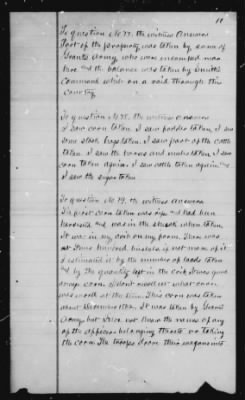 11
To question No 77. the witness answers
Part of the property was taken by some of
Grants Army, who were encamped near
here and the balance was taken by Smiths
Command while on a raid through this
Country.
To question No 78. the witness answers
I saw corn taken. I saw fodder taken, I saw
some stock hogs taken. I saw part of the cattle
taken. I saw the horses and mules taken. I saw
corn taken again. I saw cattle taken again and
I saw the sugar taken.
To question No 79. the witness answers
The first corn taken was ripe and had been
gathered, and was in the shuck when taken
It was in my crib on my farm. There was
at hundred bushels if not more of it
I estimated it by the number of loads taken
and by the quantity left in the crib. It was good
corn. I dont know what corn
was worth at the time. This corn was taken
about 1862. It was taken by Grants
Army but I do not know the names of any
of the officers belonging thereto or taking
the corn. The troops drove their wagons into